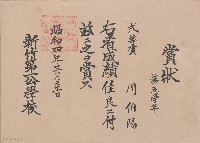 賞狀
第五學年
弍等賞
周伯陽
右者成績佳良ニ付
茲ニ之ヲ賞ス
昭和四年三月二十三日
新竹第一公學校